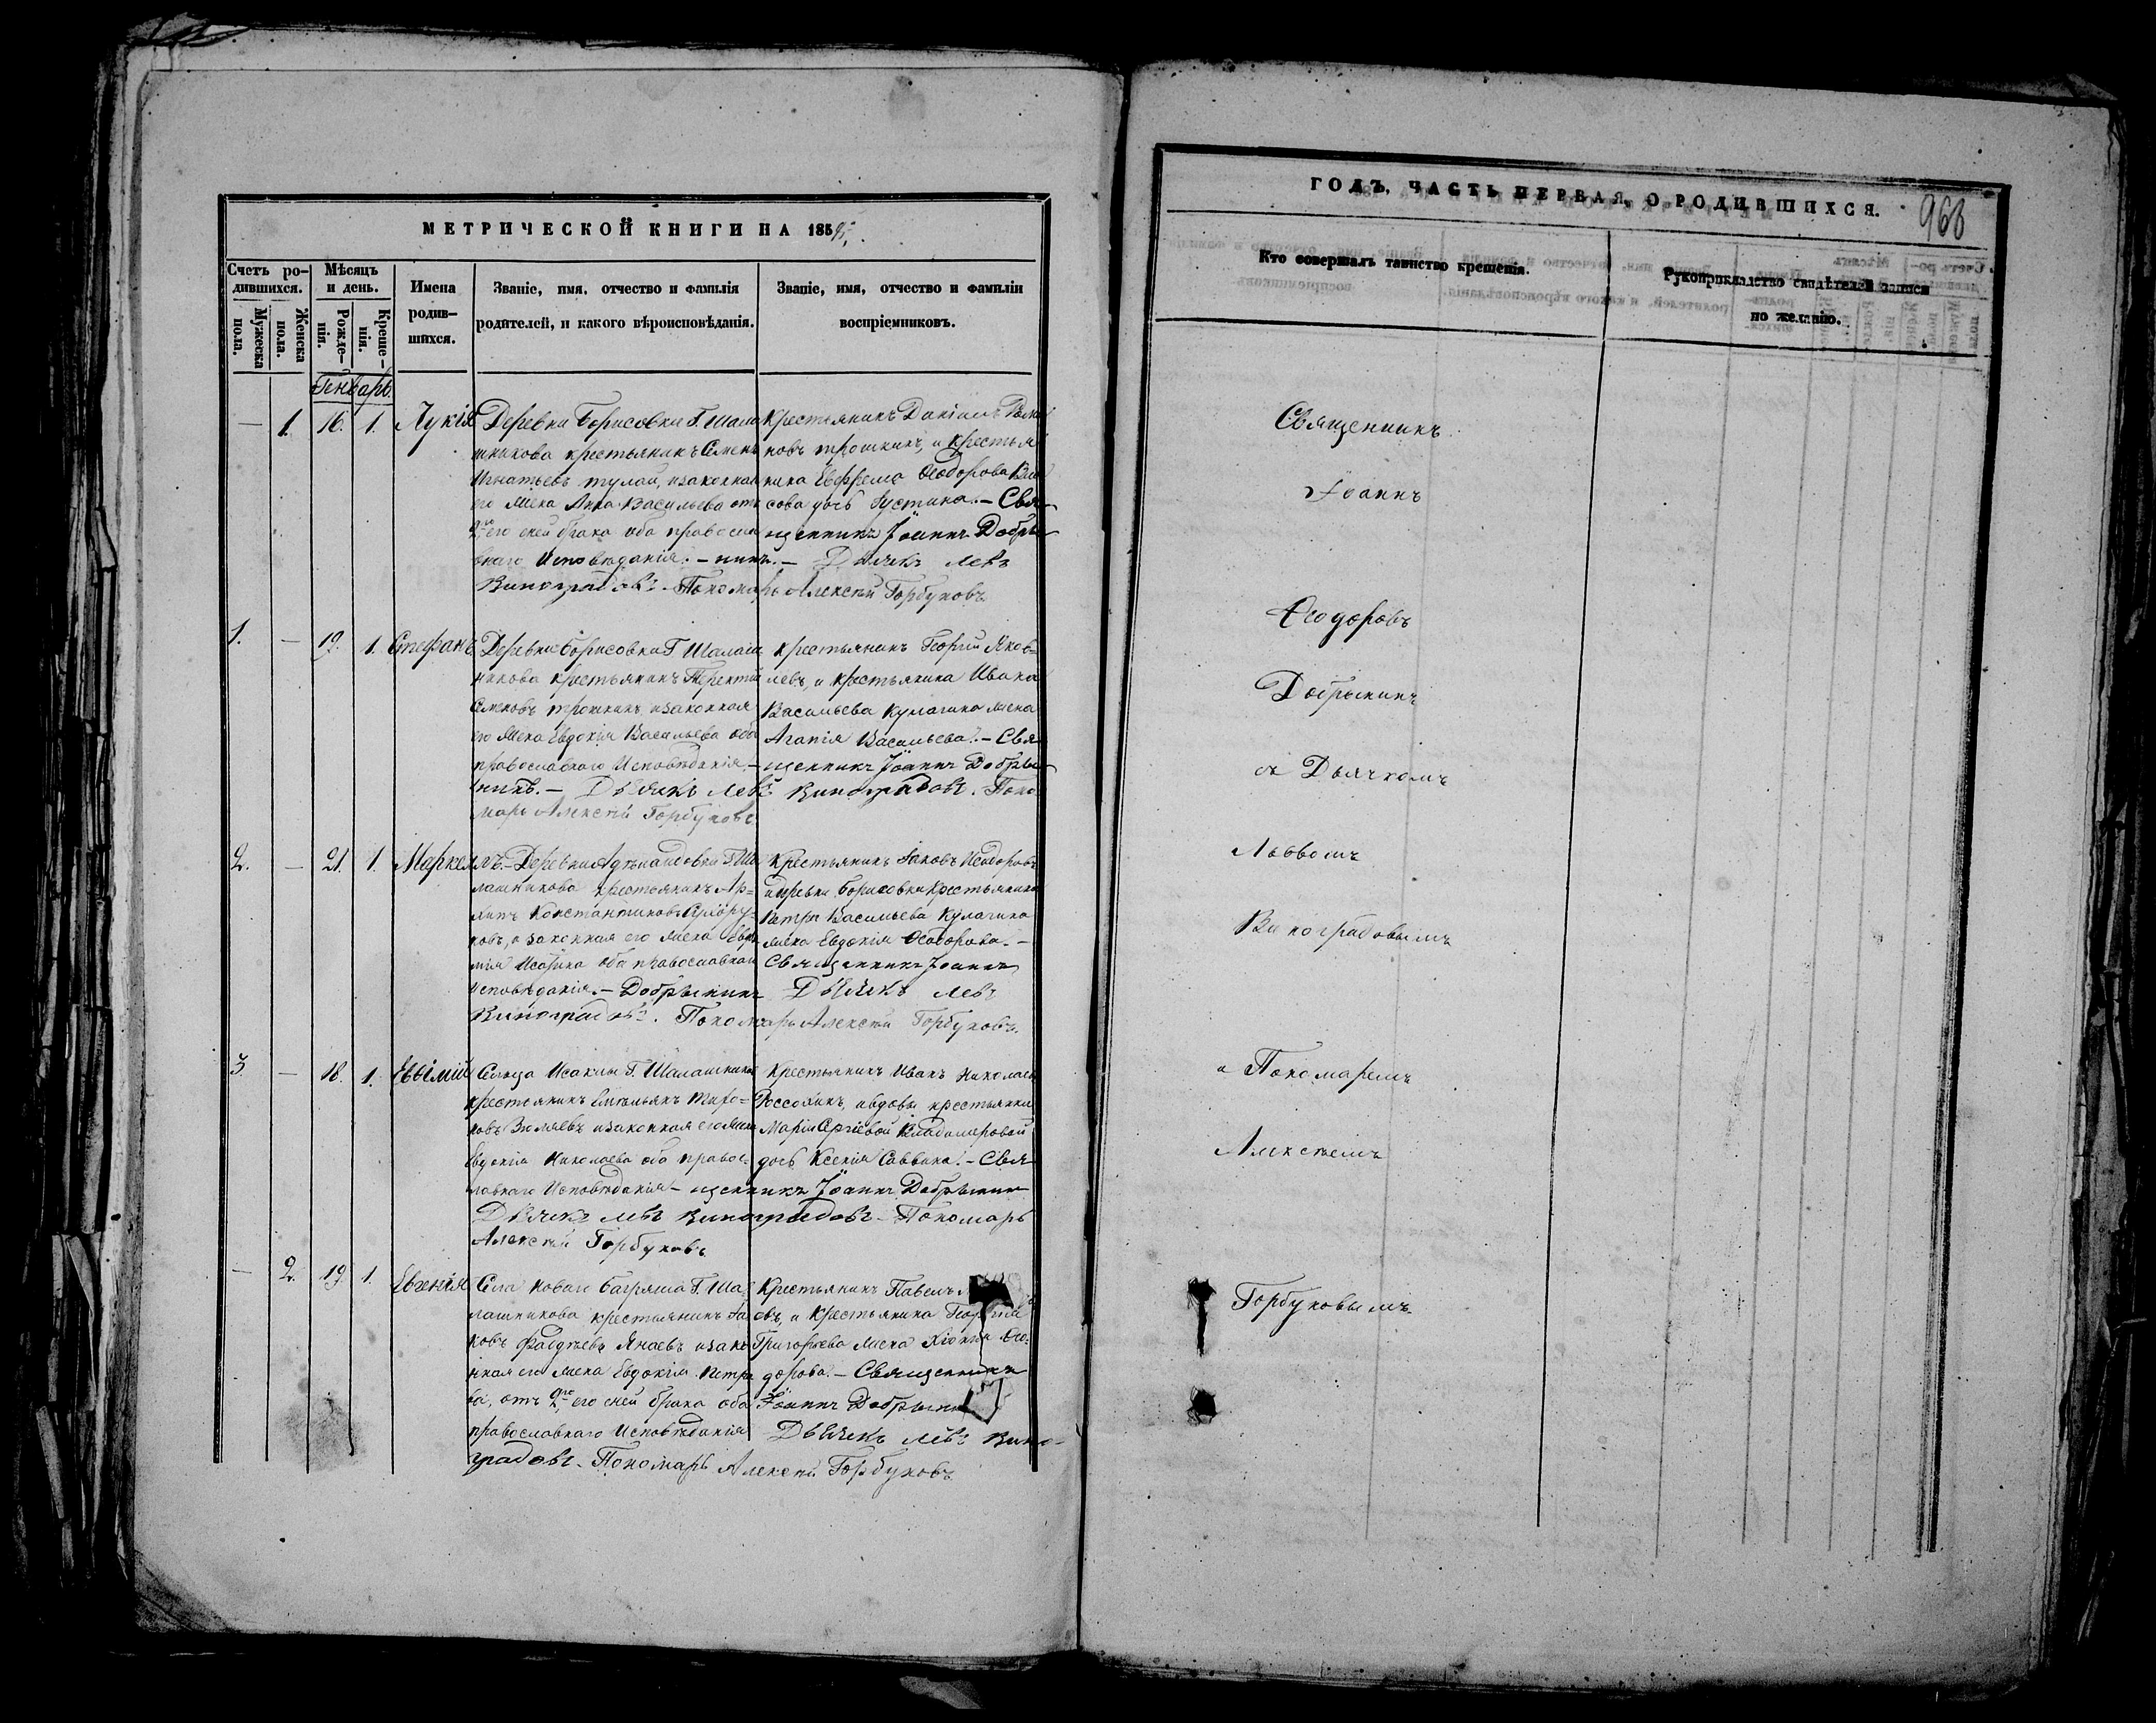 МЕТРИЧЕСКОЙ КНИГИ НА 185
Счетъ ро-
дившихся.
Мужеска
пола.
Женска
пола.
Мѣсяцъ
и день.
Рожде-
нія.
Креще-
нія.
Имена
родив-
шихся.
Званіе, имя, отчество и фамилія
родителей, и какого вѣроисповѣданія.
Званіе, имя, отчество и фамиліи
воспріемниковъ.
Генварь.
— 1. 16. 1. Лукія
Деревни Борисовки Г. Шала
шникова крестьянинъ Семенъ
Игнатьевъ и законная
его жена Анна Васильева отъ
2го его сней брака оба православ
наго Исповѣданія. –
Крестьянинъ Даніилъ
новъ трошкинъ, и крестья
нина Евфрема Ѳеодорова
сова дочь Іустина. – Свя
щенникъ Іоаннъ Добры
нинъ. – Дьячекъ Левъ
Виноградовъ. Пономарь Алексѣй Горбуновъ
1. — 19. 1. Стефанъ
Деревни Борисовки Г Шалаш
никова крестьянинъ Терентій
Семеновъ трошкинъ и законная
его жена Евдокія Васильева оба
православнаго Исповѣданія. –
крестьянинъ Георгій Яков-
левъ, и крестьянина Ивана
Васильева Кулагина жена
Агапія Васильева. – Свя
щенникъ Іоаннъ Добры
нинъ. – Дьячекъ Левъ Виноградовъ. Поно
марь Алексѣй Горбуновъ
2. — 21. 1. Маркеллъ.
Деревни Г. Ша
лашникова крестьянинъ Ар-
хипъ Константиновъ
новъ, и законная его жена
Исаева оба православнаго
Исповѣданія. –
Крестьянинъ Іаковъ Ѳеодоровъ
деревни Борисовки крестьянина
Петра Васильева Кулагина
жена Евдокія Ѳеодорова. –
Священникъ Іоаннъ
Добрынинъ Дьячекъ Левъ
Виноградовъ. Пономарь Алексѣй Горбуновъ.
3. — 18. 1. Евѳимій
Сельца Исаклы Г. Шалашникова
крестьянинъ Емельянъ Тихо-
новъ и законная его жена
Евдокія Николаева оба правос-
лавнаго Исповѣданія –
Крестьянинъ Иванъ Николаевъ
Россохинъ, и вдовы крестьянки
Маріи Сергіевой Владимировой
дочь Ксенія Саввина. – Свя
щенникъ Іоаннъ Добрынинъ
Дьячекъ Левъ Виноградовъ – Пономарь
Алексѣй Горбуновъ
— 2. 19. 1. Евгенія
Села новаго Багряша Г. Ша
лашникова крестьянинъ Іа
ковъ Фаддѣевъ Янаевъ и зако
нная его жена Евдокія Петро
ва, отъ 2го его сней брака оба
православнаго Исповѣданія
Крестьянинъ Павелъ
овъ, и крестьянина Георгія
Григорьева жена Хіонія Ѳео-
дорова. – Священникъ
Іоаннъ Добрынинъ
Дьячекъ Левъ Вино-
градовъ. Пономарь Алексѣй Горбуновъ
ГОДЪ, ЧАСТЬ ПЕРВАЯ, О РОДИВШИХСЯ.
968
Кто совершалъ таинство крещенія.
Рукоприкладство свидѣтелей записи
по желанію.
Священникъ
Іоаннъ
Ѳеодоровъ
Добрынинъ
съ Дьячкомъ
Львомъ
Виноградовымъ
и Пономаремъ
Алексѣемъ
Горбуновымъ